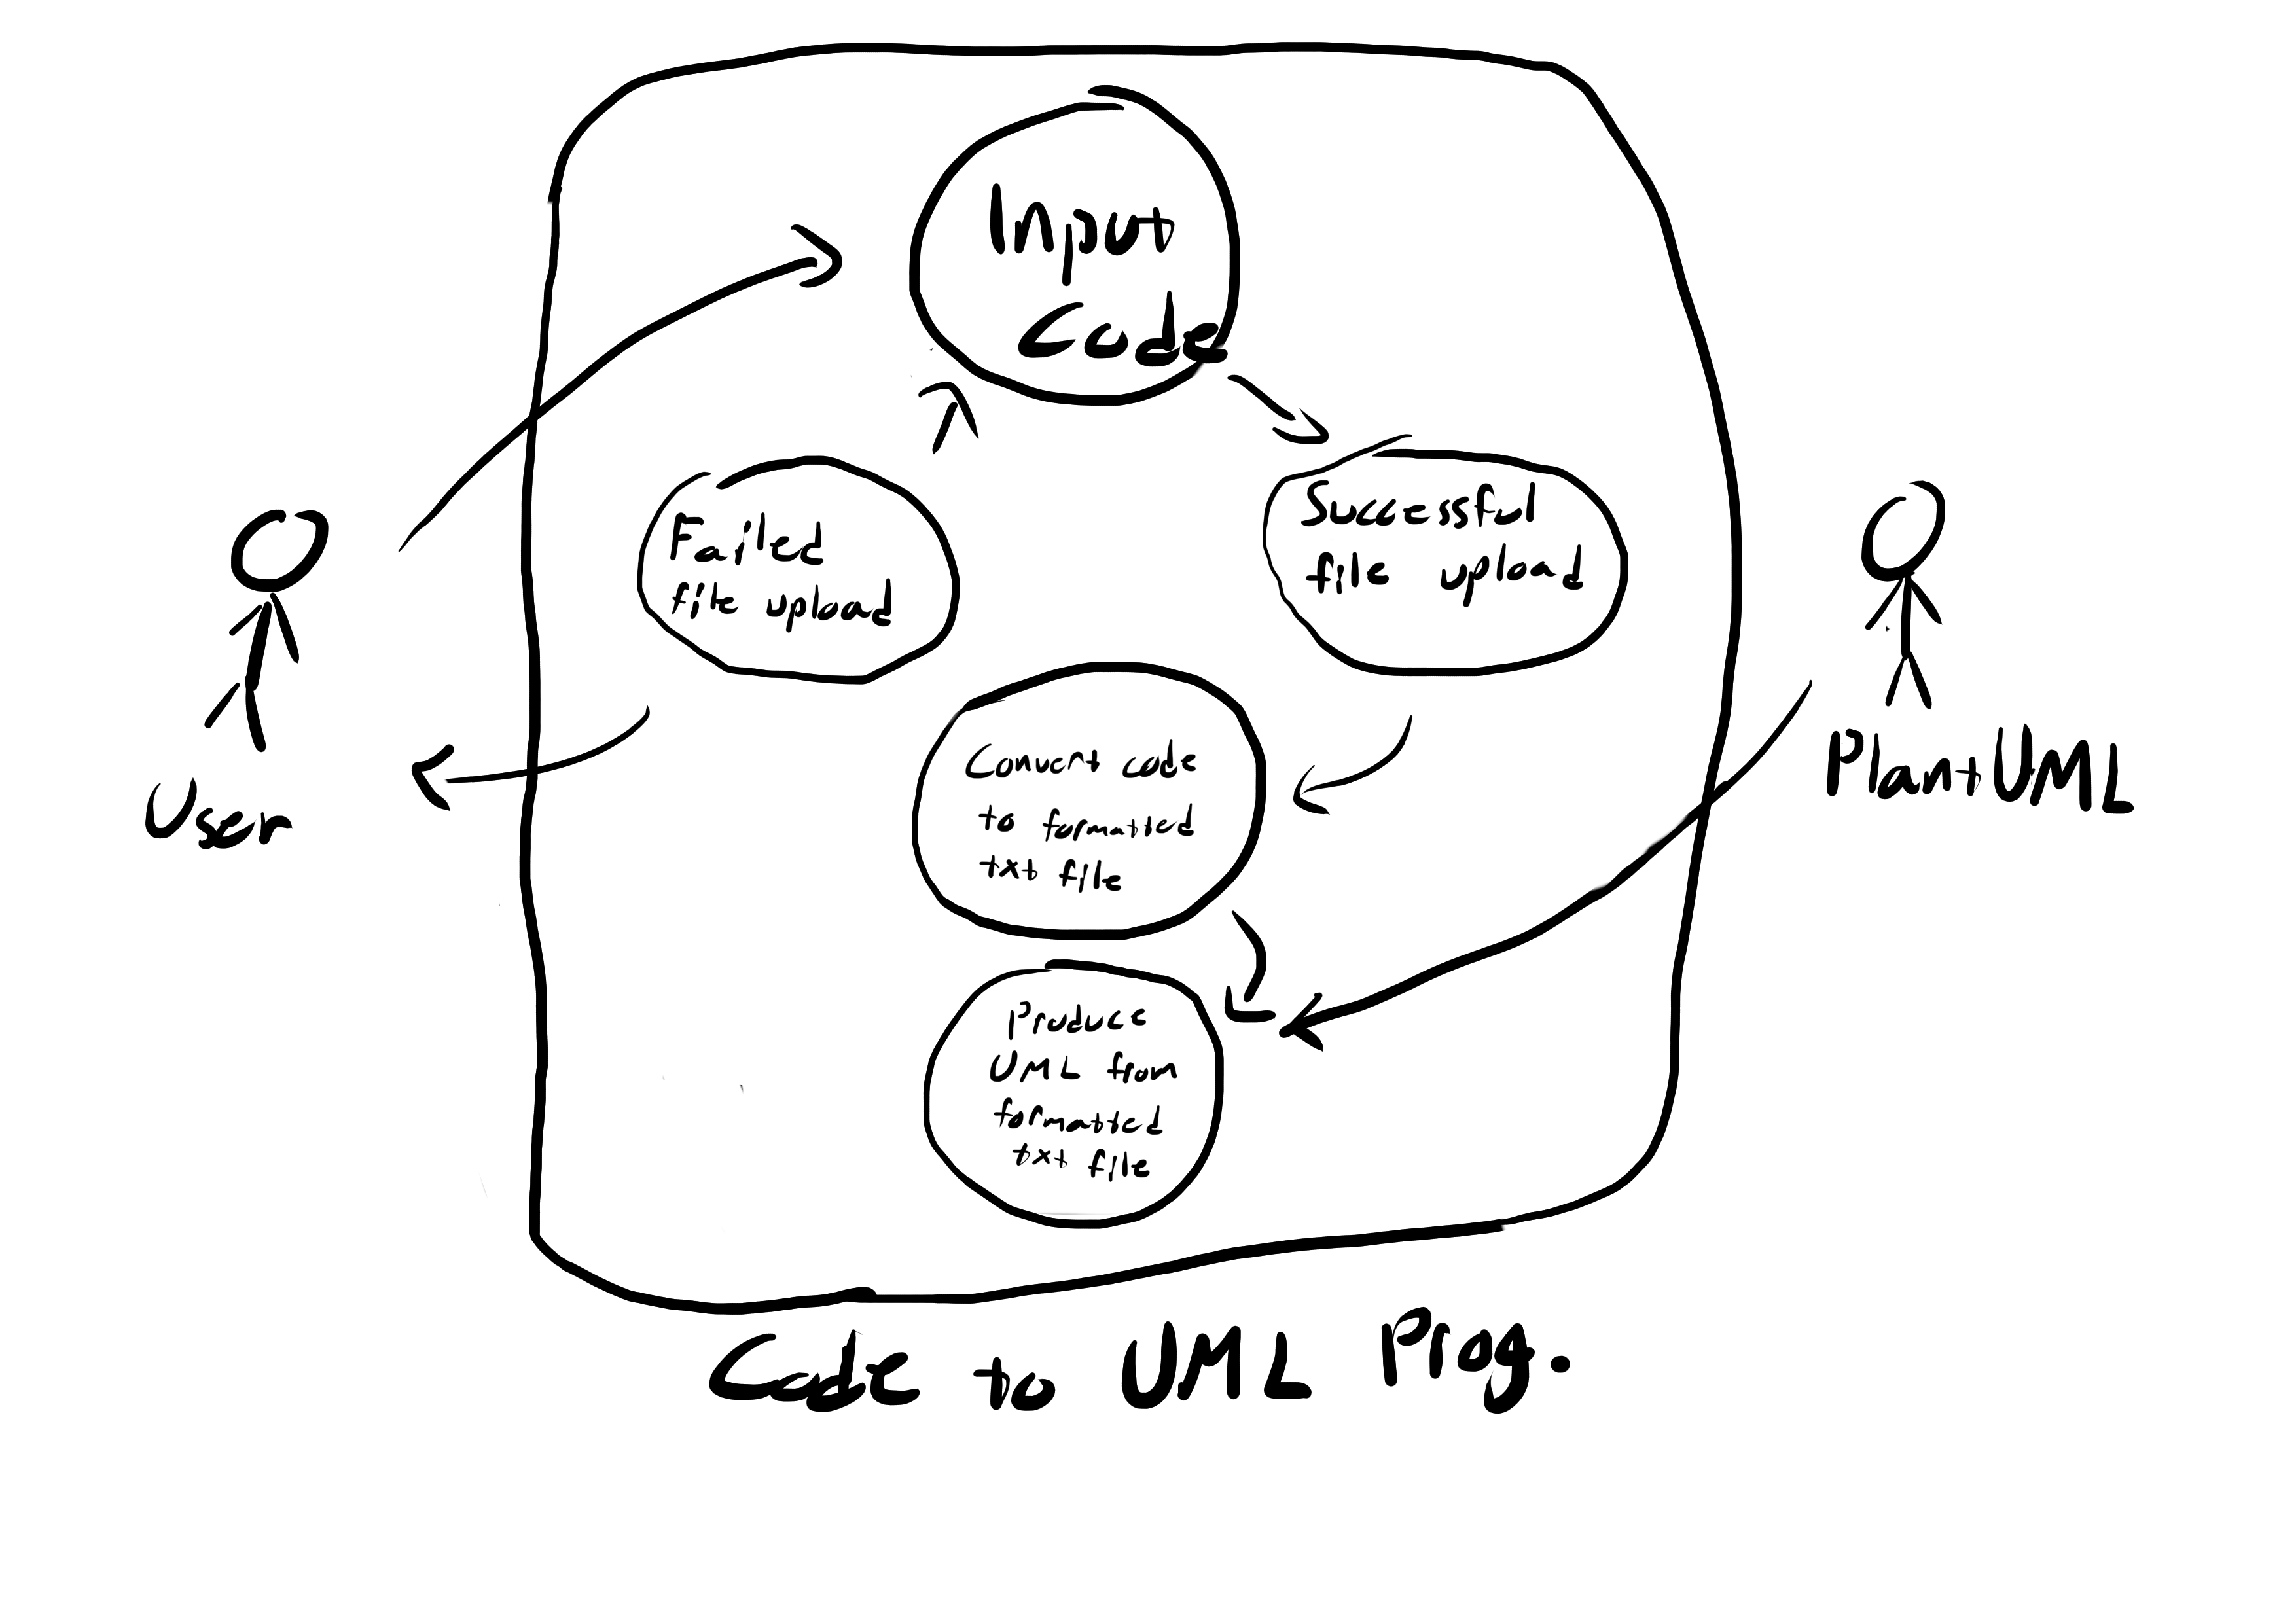 Input
Code
Failed
file upload
Successful
file upload
Convert code
to formatted
txt file
User
PlantUML
Produce
UML from
formatted
txt file
Code to UML Prog.